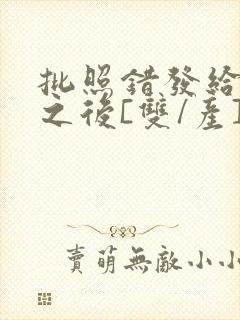 批照錯發給
之後[雙/產]
賣萌無敵小小